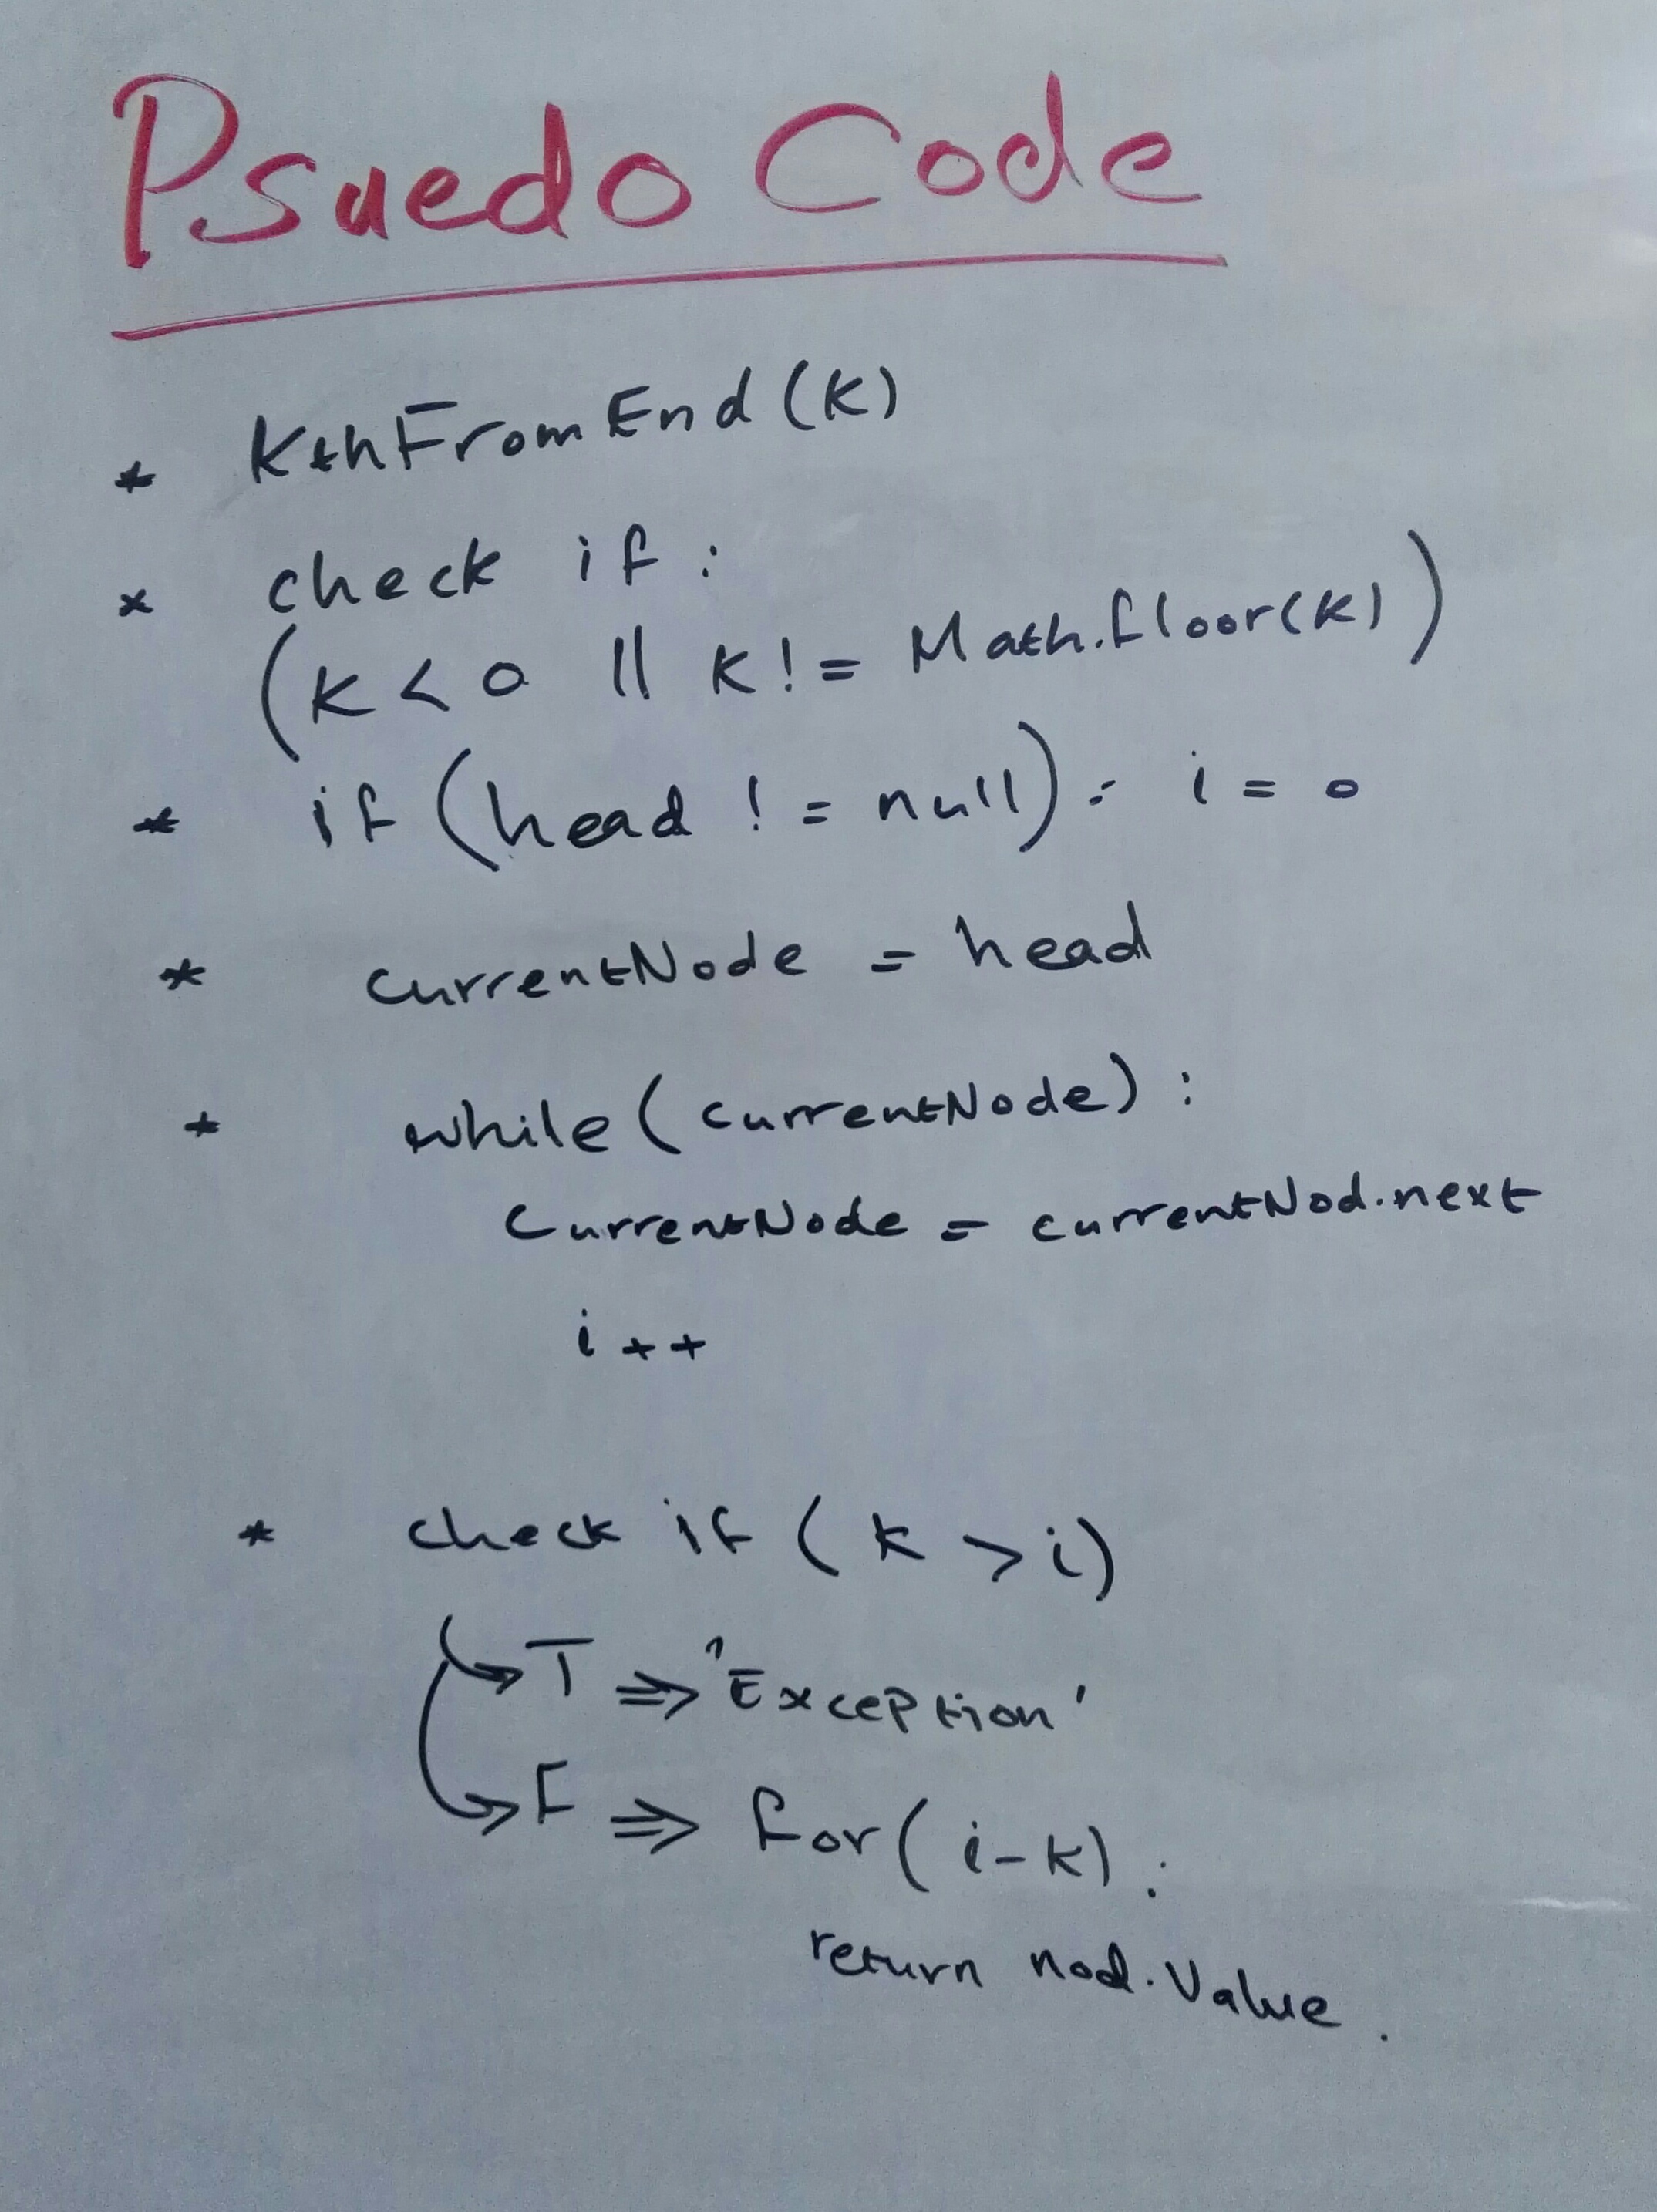 Psuedo Code
* KthFromEnd(K)
* check if :
(K < 0 || K != Math.floor(K))
* if (head != null) : i = 0
* currentNode = head
* while (currentNode) :
CurrentNode = currentNod.next
i ++
* check if (k > i)
T ⇒ 'Exception'
F ⇒ for( i-k) :
return nod.Value .